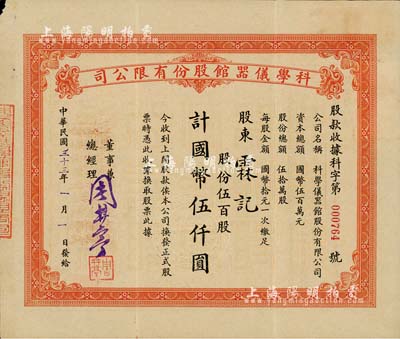 上海陽明拍賣
科學儀器館股份有限公司
股款收據科字第 000764 號
公司名稱 科學儀器館股份有限公司
資本總額 國幣伍百萬元
股份總額 伍拾萬股
每股金額 國幣拾元一次繳足
股東 霖記
股份伍百股
計國幣伍仟圓
今收到上開股款俟本公司換發正式股
票時憑此收據換取股票此據
董事兼
總經理
中華民國三十二年一月一日發給
上海陽明拍賣
www.yangmingauction.com